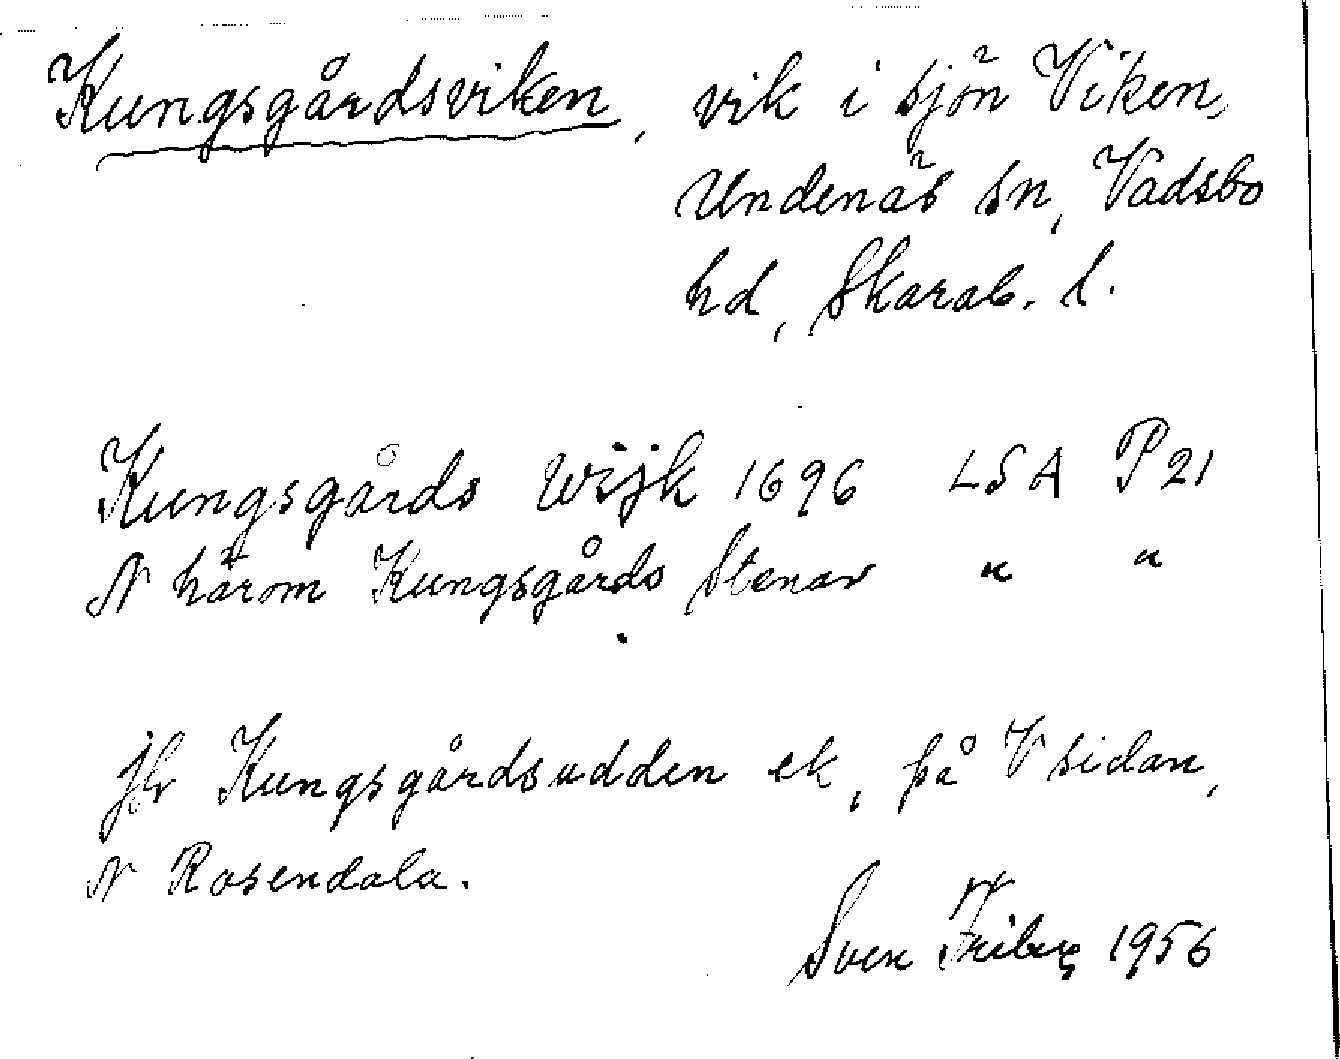 Kungsgårdsviken, vik i sjön Viken,
Undenäs sn, Vadsbo
hd, Skarab. l.
Kungsgårds Wijk 1696 LSA P21
N härom Kungsgårds Stenar " "
jfr Kungsgårdsudden ek, på V sidan,
N Rosendala.
Sven Friberg 1956